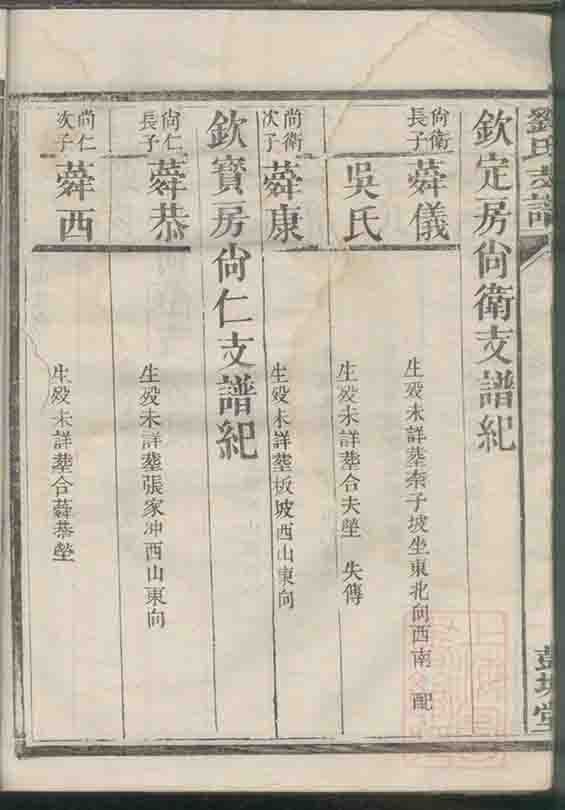 劉氏支譜
彭城堂
欽定房尙衛支譜紀
尙衛長子
蕣儀
生歿未詳塟奈子坡坐東北向西南 配
吳氏
生歿未詳塟合夫塋 失傳
尙衛次子
蕣康
生歿未詳塟坂坡西山東向
欽寳房尙仁支譜紀
尙仁長子
蕣恭
生歿未詳塟張家冲西山東向
尙仁次子
蕣西
生歿未詳塟合蕣恭塋